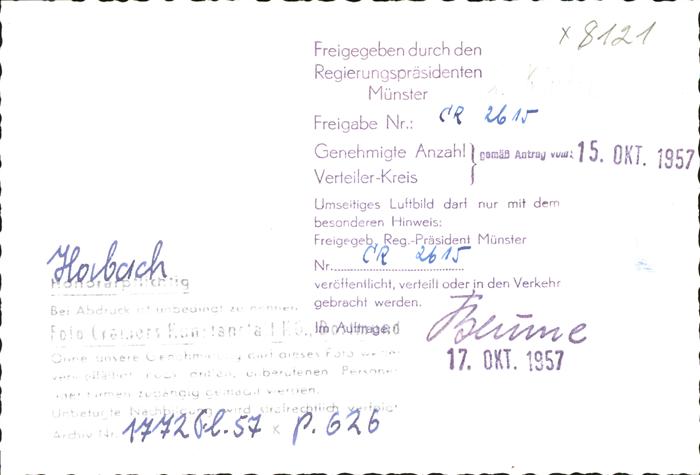 x 8121
Freigegeben durch den
Regierungspräsidenten
Münster
Freigabe Nr.: CR 2615
Genehmigte Anzahl } gemäß Antrag vom: 15. OKT. 1957
Verteiler-Kreis
Umseitiges Luftbild darf nur mit dem
besonderen Hinweis:
Freigegeb. Reg.-Präsident Münster
Nr. CR 2615
veröffentlicht, verteilt oder in den Verkehr
gebracht werden.
Im Auftrage:
Blume
17. OKT. 1957
Habach
Honorarpflichtig
Bei Abdruck ist unbedingt zu nennen
Foto Cramers Konstantia
Ohne unsere Genehmigung darf dieses Foto weder
vervielfältigt noch dritten, unberufenen Personen
oder Firmen zugängig gemacht werden.
Unbefugte Nachbildung wird strafrechtlich verfolgt
Archiv Nr. 1772 Pl. 57 x P. 626